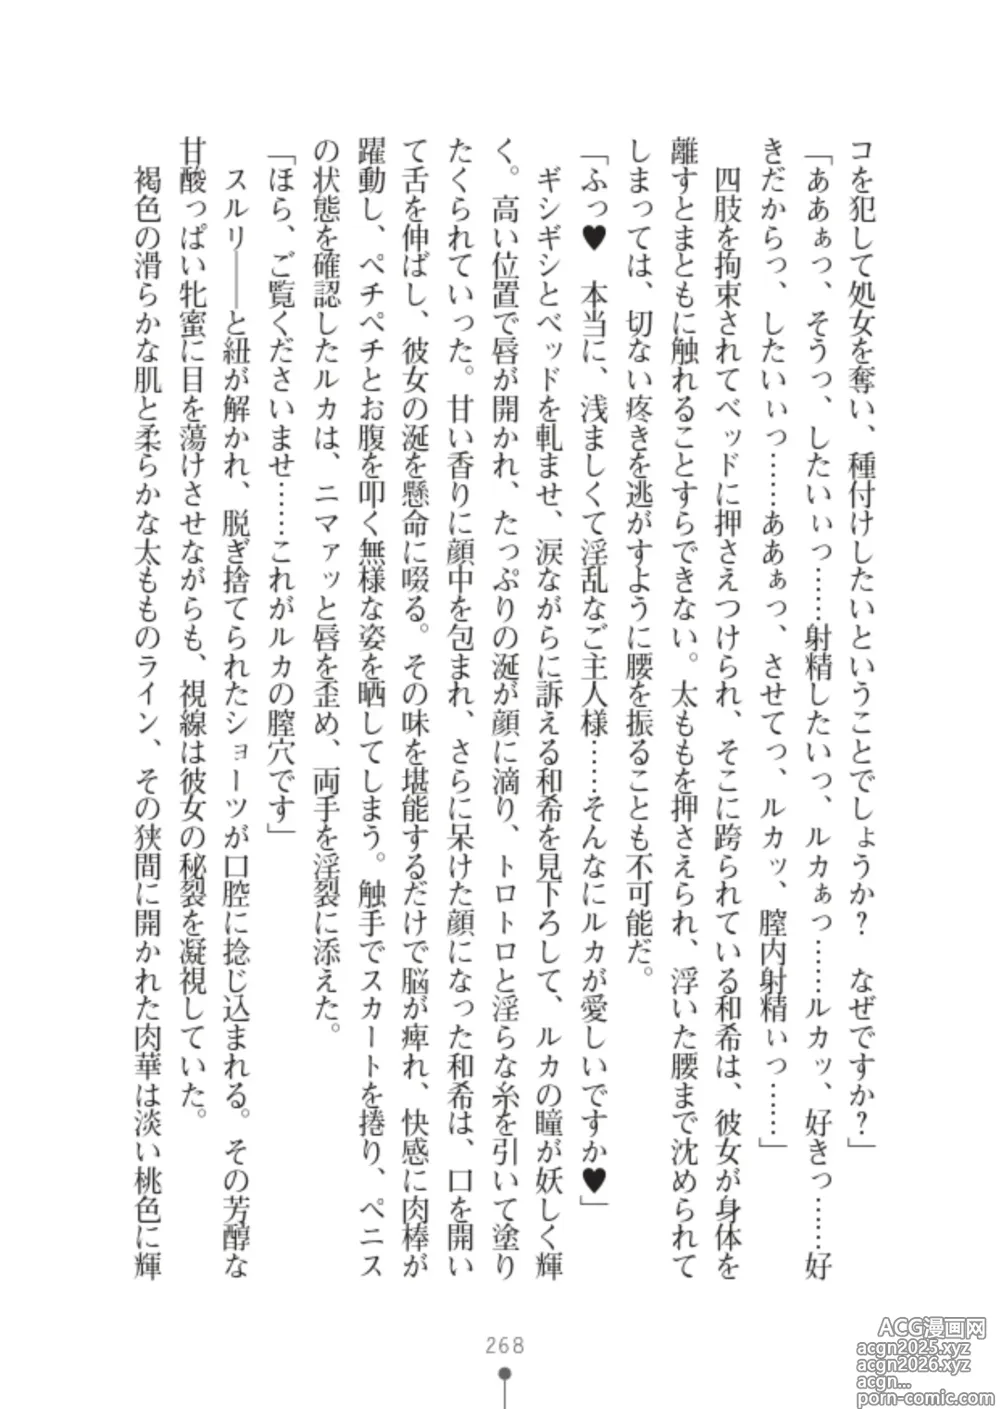 コを犯して処女を奪い、種付けしたいということでしょうか？　なぜですか？」
「ああぁっ、そうっ、したいぃっ……射精したいっ、ルカぁっ……ルカッ、好きっ……好
きだからっ、したいぃっ……ああぁっ、させてっ、ルカッ、膣内射精ぃっ……」
　四肢を拘束されてベッドに押さえつけられ、そこに跨られている和希は、彼女が身体を
離すとまともに触れることすらできない。太ももを押さえられ、浮いた腰まで沈められて
しまっては、切ない疼きを逃がすように腰を振ることも不可能だ。
「ふっ♥　本当に、浅ましくて淫乱なご主人様……そんなにルカが愛しいですか♥」
　ギシギシとベッドを軋ませ、涙ながらに訴える和希を見下ろして、ルカの瞳が妖しく輝
く。高い位置で唇が開かれ、たっぷりの涎が顔に滴り、トロトロと淫らな糸を引いて塗り
たくられていった。甘い香りに顔中を包まれ、さらに呆けた顔になった和希は、口を開い
て舌を伸ばし、彼女の涎を懸命に啜る。その味を堪能するだけで脳が痺れ、快感に肉棒が
躍動し、ペチペチとお腹を叩く無様な姿を晒してしまう。触手でスカートを捲り、ペニス
の状態を確認したルカは、ニマァッと唇を歪め、両手を淫裂に添えた。
「ほら、ご覧くださいませ……これがルカの膣穴です」
　スルリ――と紐が解かれ、脱ぎ捨てられたショーツが口腔に捻じ込まれる。その芳醇な
甘酸っぱい牝蜜に目を蕩けさせながらも、視線は彼女の秘裂を凝視していた。
　褐色の滑らかな肌と柔らかな太もものライン、その狭間に開かれた肉華は淡い桃色に輝
268
ACG漫画网
acgn2025.xyz
acgn2026.xyz
acgn...
porn-comic.com